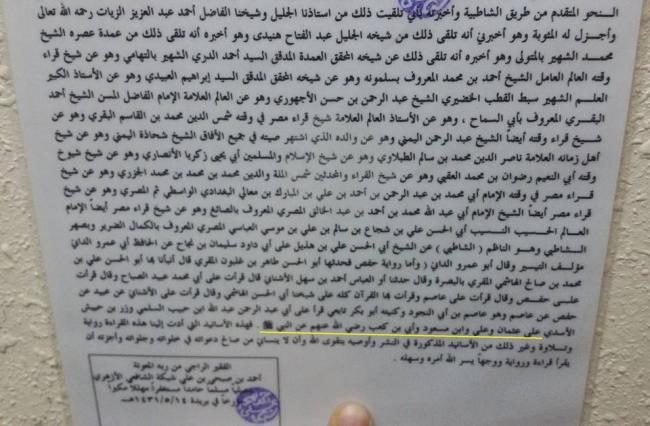 السنحو المتقدم من طريق الشاطبية وأخبرته بأني تلقيت ذلك من استاذنا الجليل وشيخنا الفاضل أحمد عبد العزيز الزيات رحمه الله
وأجزل له المثوبة وهو أخبرني أنه تلقى ذلك من شيخه الجليل عبد الفتاح هنيدى وهو أخبره أنه تلقى ذلك من عمدة عصره الشيخ
محمد الشهير بالمتولى وهو أخبره أنه تلقى ذلك عن شيخه المحقق العمدة المدقق السيد أحمد الدري الشهير بالتهامي وهو عن شيخ قراء
وقته العالم العامل الشيخ أحمد بن محمد المعروف بسلمونه وهو عن شيخه المحقق المدقق السيد إبراهيم العبيدي وهو عن الأستاذ الكبير
العلم الشهير سبط القطب الخضيري الشيخ عبد الرحمن بن حسن الأجهوري وهو عن العالم العلامة الإمام الفاضل المسن الشيخ أحمد
البقري المعروف بأبي السماح، وهو عن الأستاذ العالم العلامة شيخ قراء مصر في وقته شمس الدين محمد بن القاسم البقري وهو عن
شيخ قراء وقته أيضاً الشيخ عبد الرحمن اليمني وهو عن والده الذي اشتهر صيته في جميع الآفاق الشيخ شحاذة اليمني وهو عن
أهل زمانه العلامة ناصر الدين محمد بن سالم الطبلاوي وهو عن شيخ الإسلام والمسلمين أبي يحيى زكريا الأنصاري وهو عن شيخ شيوخ
وقته أبي النعيم رضوان بن محمد العقبي وهو عن شيخ القراء والمحدثين شمس الملة والدين محمد بن محمد بن محمد الجزري وهو عن شيخ
قراء مصر في وقته الإمام أبي محمد بن عبد الرحمن بن أحمد بن علي بن المبارك بن معالي البغدادي الواسطي ثم المصري وهو عن شيخ
قراء مصر أيضاً الشيخ الإمام أبي عبد الله محمد بن أحمد بن عبد الخالق المصري المعروف بالصائغ وهو عن شيخ قراء مصر أيضاً الإمام
العالم الحسيب النسيب أبي الحسن علي بن شجاع بن سالم بن علي بن موسى العباسي المصري المعروف بالكمال الضرير وبصهر
الشاطبي وهو الناظم (الشاطبي) عن الشيخ أبي الحسن علي بن هذيل على أبي داود سليمان بن نجاح عن الحافظ أبي عمرو الداني
مؤلف التيسير وقال أبو عمرو الداني (وأما رواية حفص فحدثنا بها أبو الحسن طاهر بن غلبون المقري قال أنبأنا بها أبو الحسن علي بن
محمد بن صالح الهاشمي المقري بالبصرة وقال حدثنا أبو العباس أحمد بن سهل الأشناني قال قرأت على أبي محمد عبيد الصباح وقال قرأت
على حفص وقال قرأت على عاصم وقرأت بها القرآن كله على شيخنا أبي الحسن الهاشمي وقال قرأت على الأشناني عن عبيد عن
حفص عن عاصم وهو عاصم بن أبي النجود وكنيته أبو بكر تابعي قرأ على أبي عبد الرحمن عبد الله ابن حبيب السلمي وزر بن حبيش
الأسدي على عثمان وعلي وابن مسعود وأبي بن كعب رضي الله عنهم عن النبي ﷺ فهذه الأسانيد التي أدت إلينا هذه القراءة رواية
وتلاوة وغير ذلك من الأسانيد المذكورة في النشر وأوصيه بتقوى الله وأن لا ينساني من صالح دعوته في خلواته وجلواته وأجزته أن
يقرأ قراءة ورواية ووجهاً يسر الله أمره وسهله.
الفقير الراجي من ربه المعونة
أحمد بن صبحي بن علي شبكة الشافعي الأزهري
مصلياً مسلماً حامداً مستغفراً مهللاً مكبراً
في بريدة ١٤٣١/٥/١٤هـ